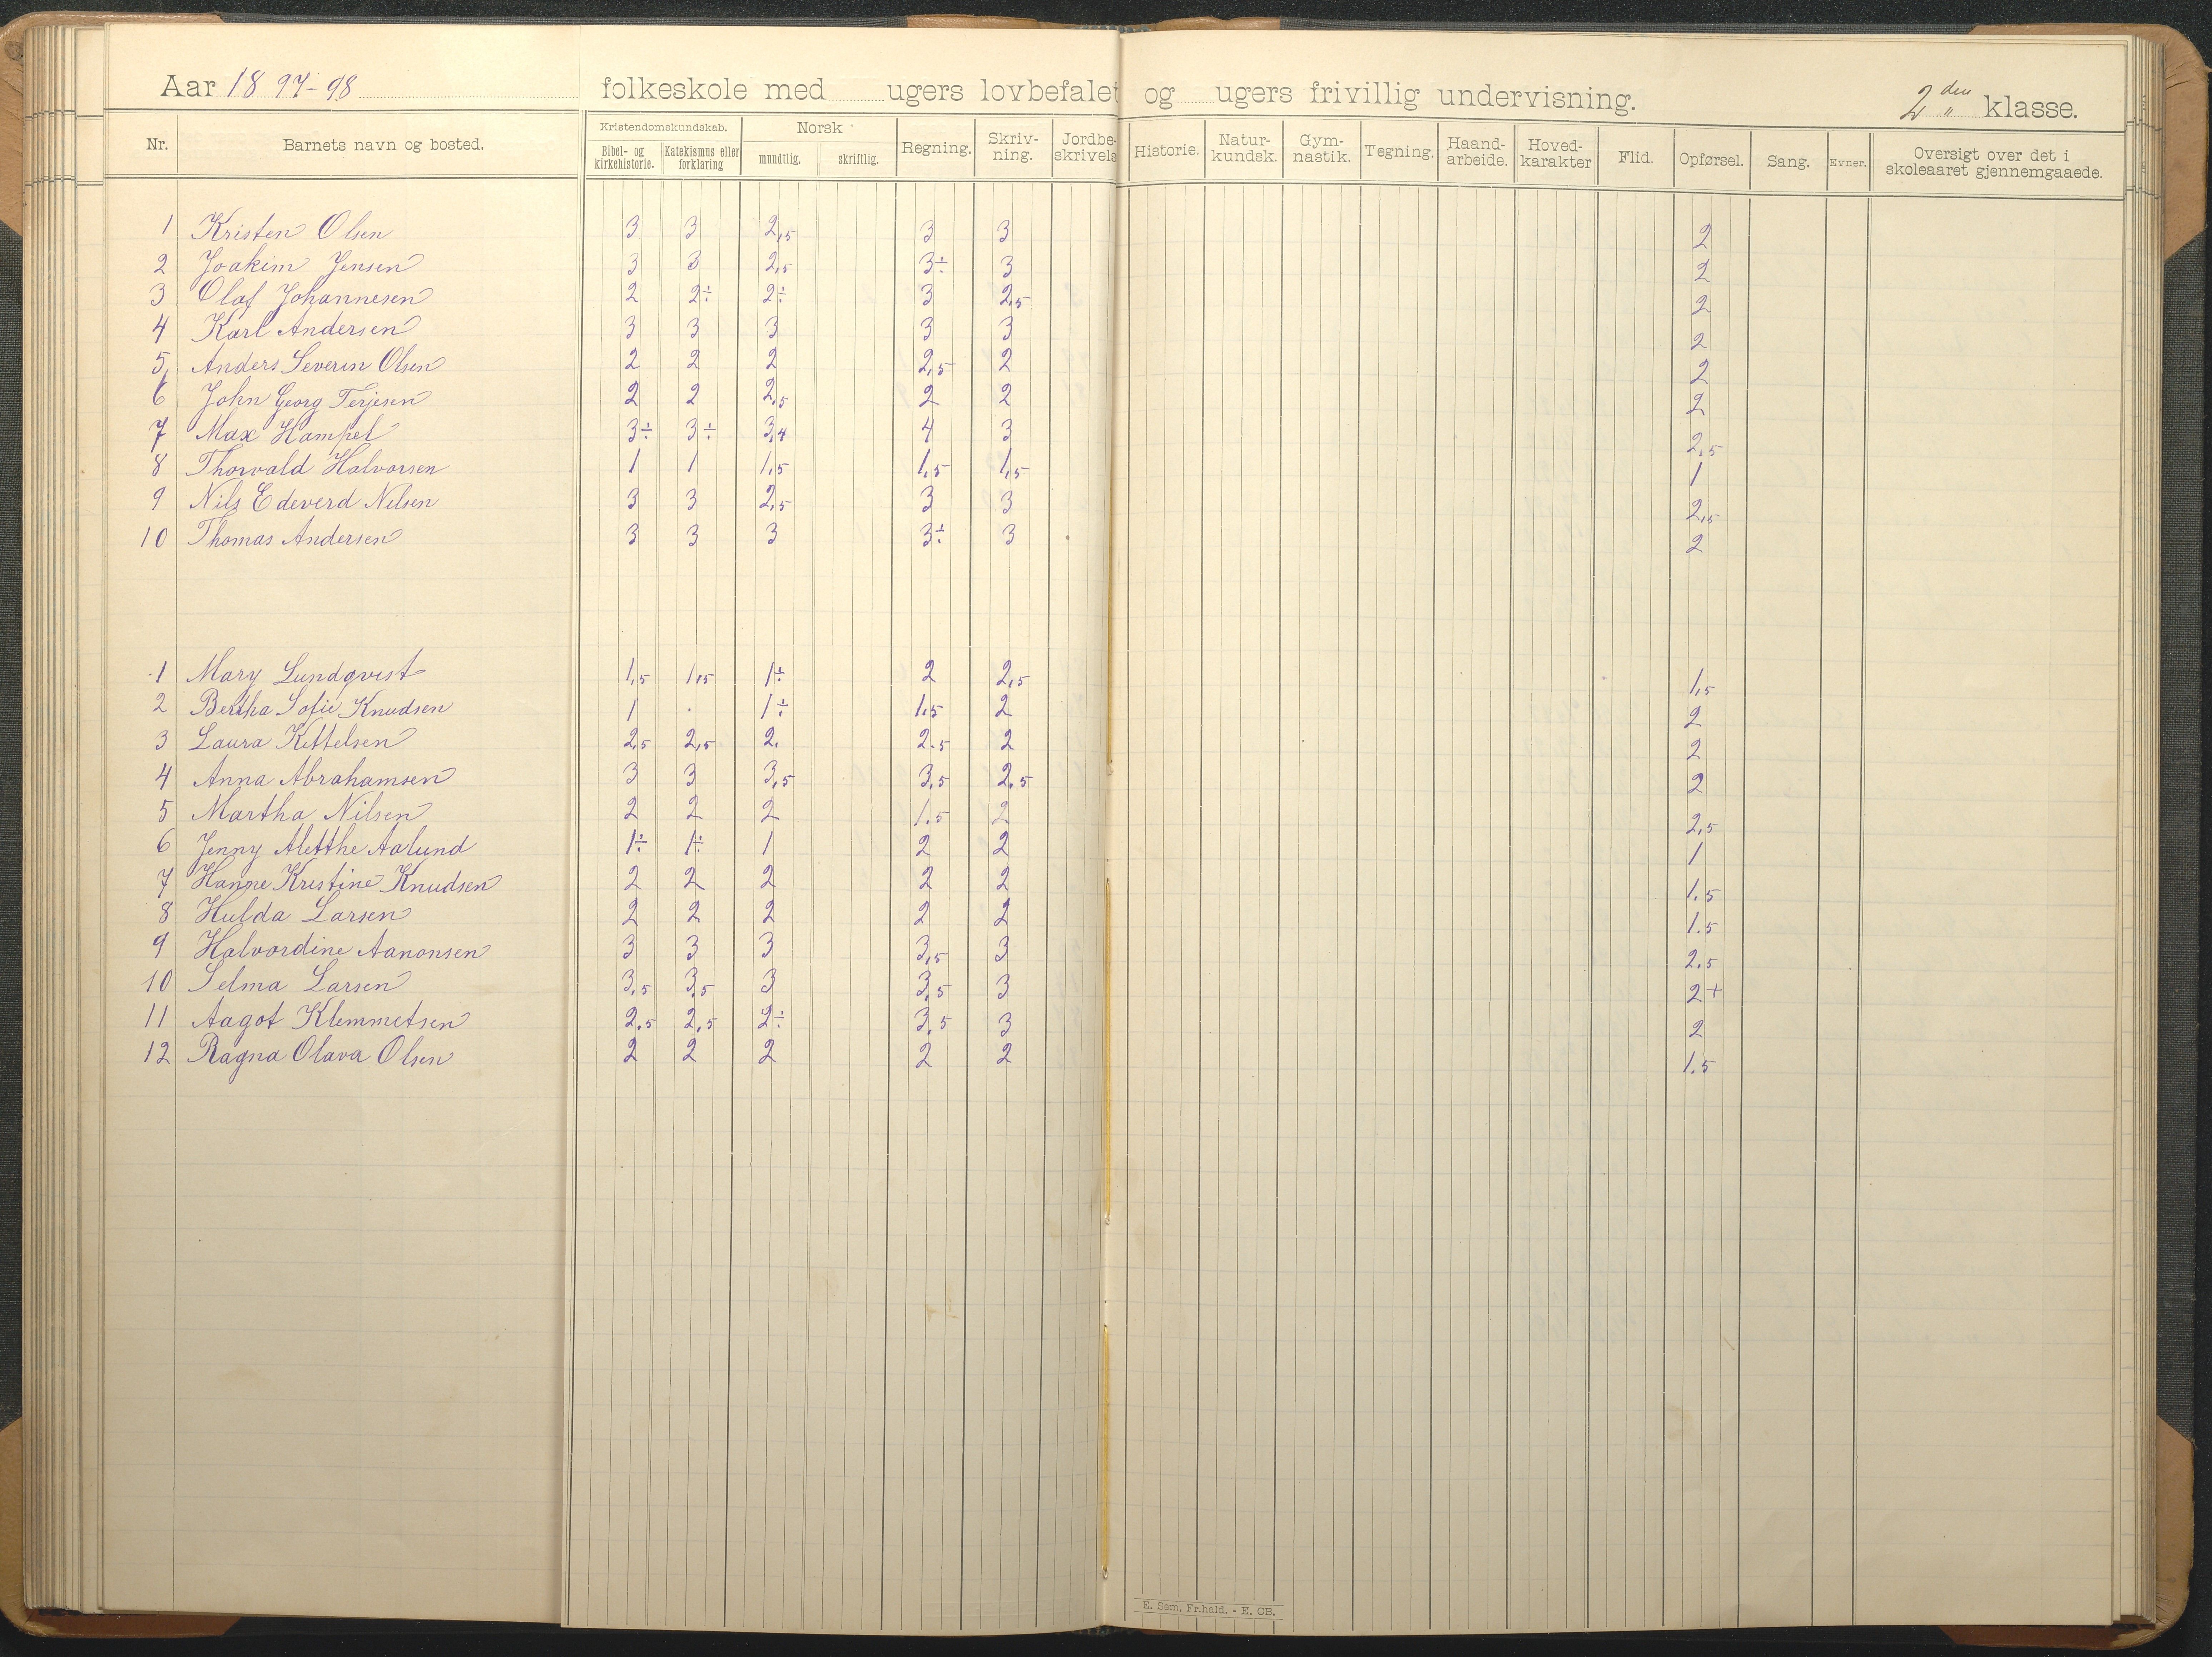 Aar 1897-98 folkeskole med ugers lovbefalet og ugers frivillig undervisning. 2den klasse.
Nr. Barnets navn og bosted. Kristendomskundskab. Norsk Regning. Skriv-ning. Jordbe-skrivels Historie. Natur-kundsk. Gym-nastik. Tegning. Haand-arbeide. Hoved-karakter Flid. Opførsel. Sang. Evner. Oversigt over det i skoleaaret gjennemgaaede.
Bibel- og kirkehistorie. Katekismus eller forklaring mundtlig. skriftlig.
1 Kristen Olsen 3 3 2,5 3 3 2
2 Joakim Jensen 3 3 2,5 3÷ 3 2
3 Olaf Johannesen 2 2÷ 2÷ 3 2,5 2
4 Karl Andersen 3 3 3 3 3 2
5 Anders Severin Olsen 2 2 2 2,5 2 2
6 John Georg Terjesen 2 2 2,5 2 2 2
7 Max Hampel 3÷ 3÷ 3,4 4 3 2,5
8 Thorvald Halvorsen 1 1 1,5 1,5 1,5 1
9 Nils Edeverd Nilsen 3 3 2,5 3 3 2,5
10 Thomas Andersen 3 3 3 3÷ 3 2
1 Mary Lundqvist 1,5 1,5 1÷ 2 2,5 1,5
2 Bertha Sofie Knudsen 1 . 1÷ 1.5 2 2
3 Laura Kettelsen 2,5 2,5 2. 2.5 2 2
4 Anna Abrahamsen 3 3 3,5 3,5 2,5 2
5 Martha Nilsen 2 2 2 1.5 2 2,5
6 Jenny Aletthe Aalund 1÷ 1÷ 1 2 2 1
7 Hanne Kristine Knudsen 2 2 2 2 2 1.5
8 Hulda Larsen 2 2 2 2 2 1.5
9 Halvordine Aanonsen 3 3 3 3,5 3 2.5
10 Selma Larsen 3,5 3,5 3 3,5 3 2+
11 Aagot Klemmetsen 2.5 2,5 2÷ 3,5 3 2
12 Ragna Olava Olsen 2 2 2 2 2 1.5
E. Sem, Fr.hald. - E. CB.